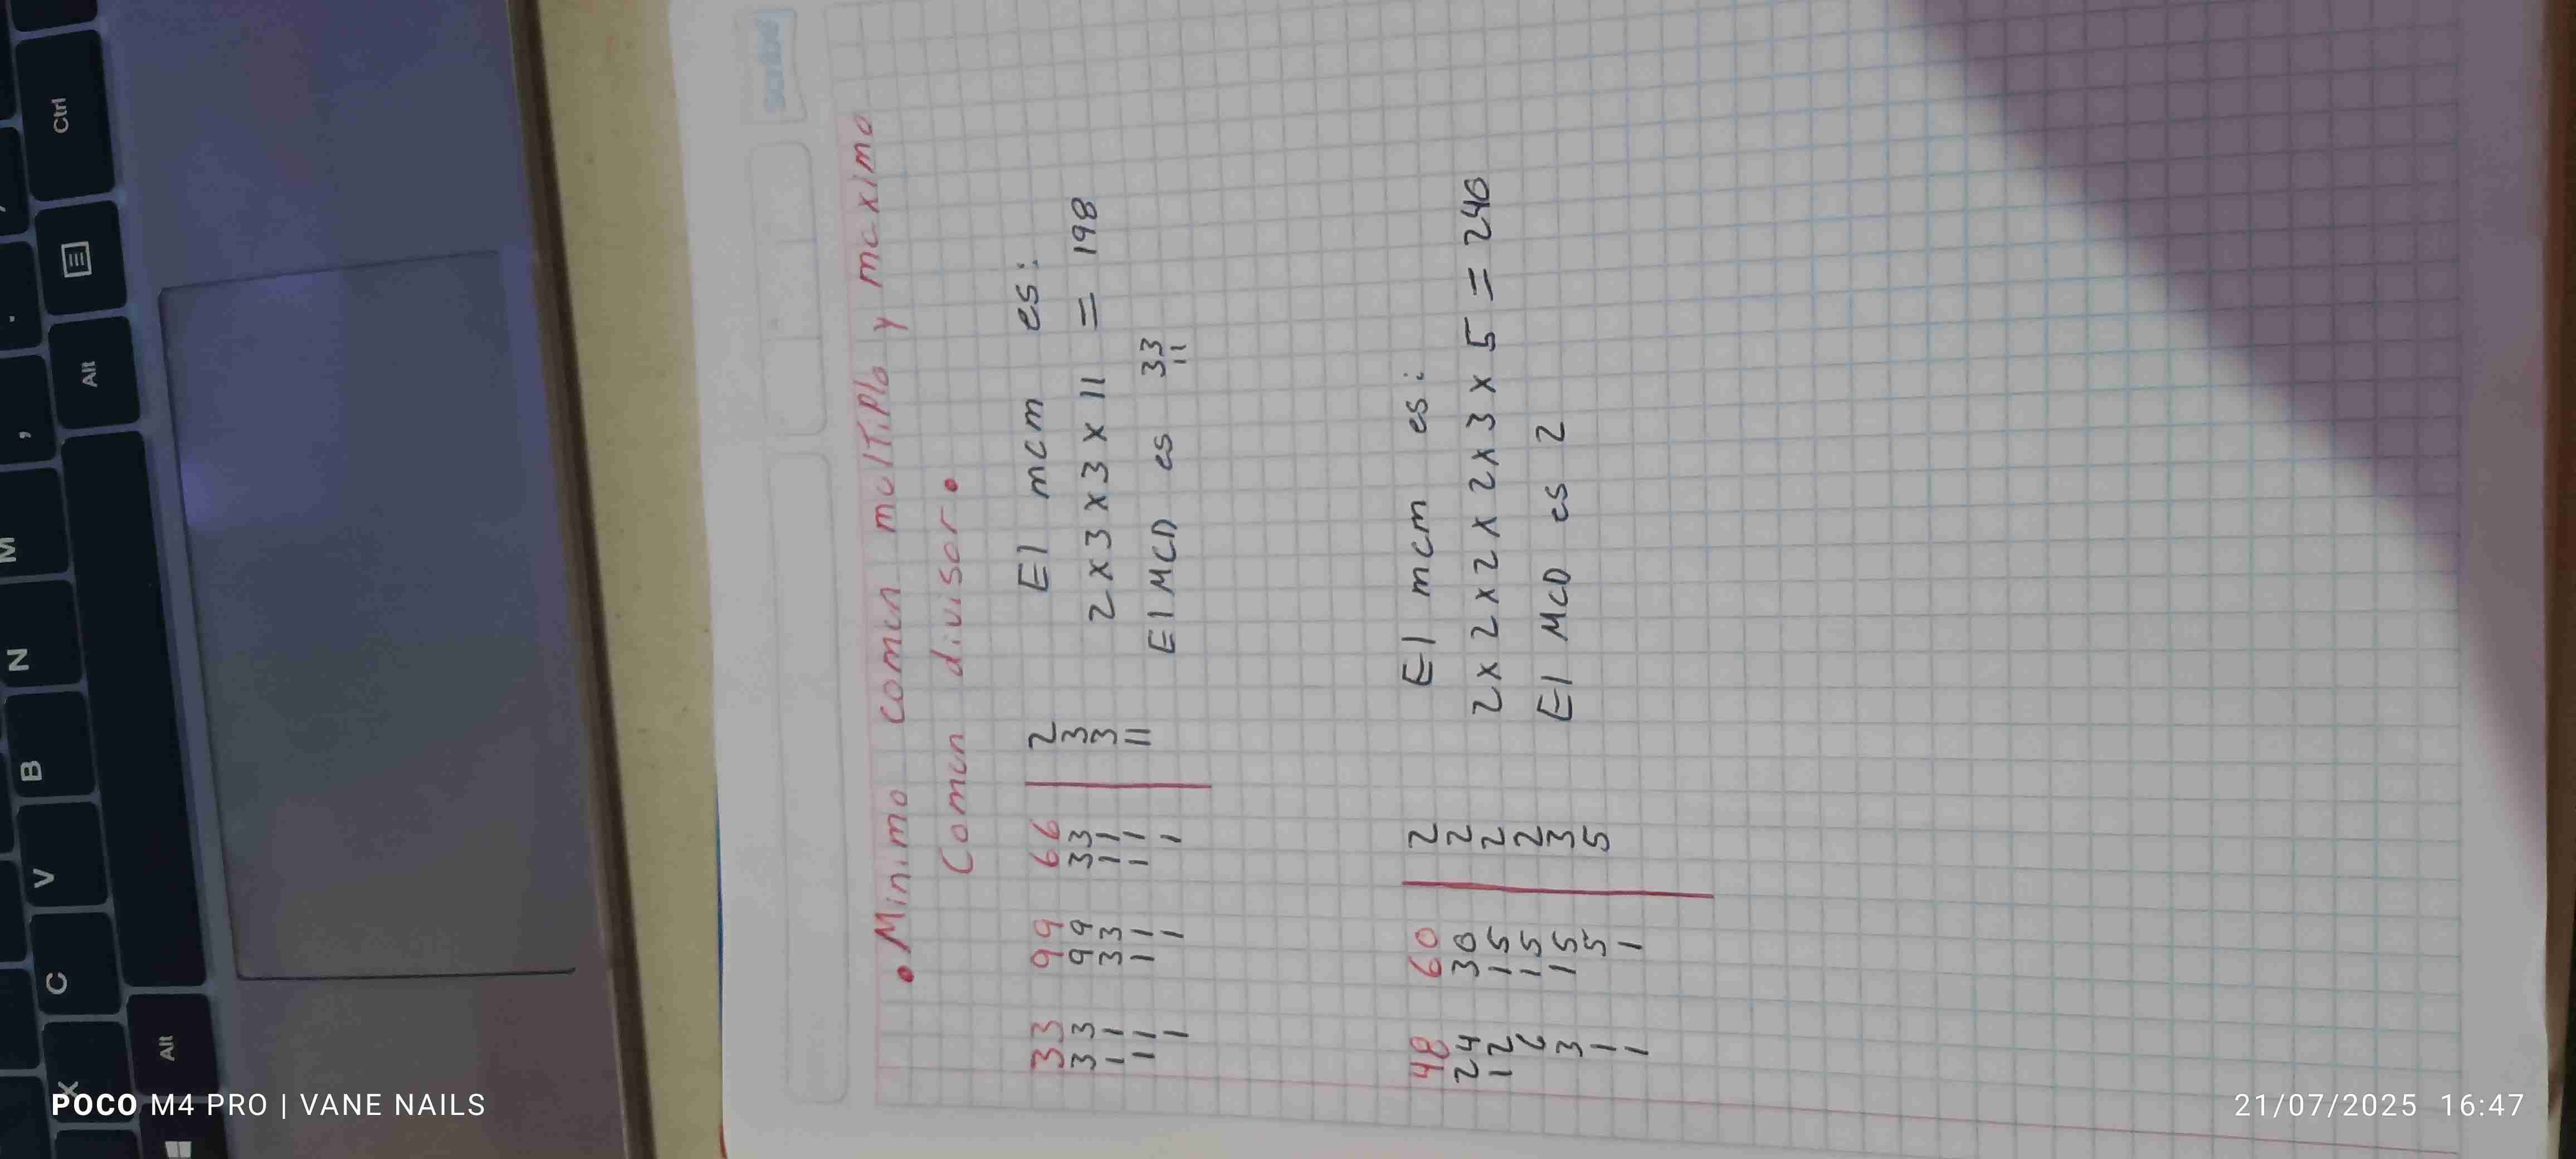 Scribe
• Minimo comun multiplo y maximo
Comun divisor •
33 99 66 | 2
33 99 33 | 3
11 33 11 | 3
11 11 11 | 11
1 1 1
El mcm es:
2x3x3x11 = 198
El MCD es 33
11
48 60 | 2
24 30 | 2
12 15 | 2
6 15 | 2
3 15 | 3
1 5 | 5
1 1
El mcm es:
2x2x2x2x3x5 = 240
El MCD es 2
Ctrl
Alt
,
.
M
N
B
V
C
X
Alt
POCO M4 PRO | VANE NAILS
21/07/2025 16:47